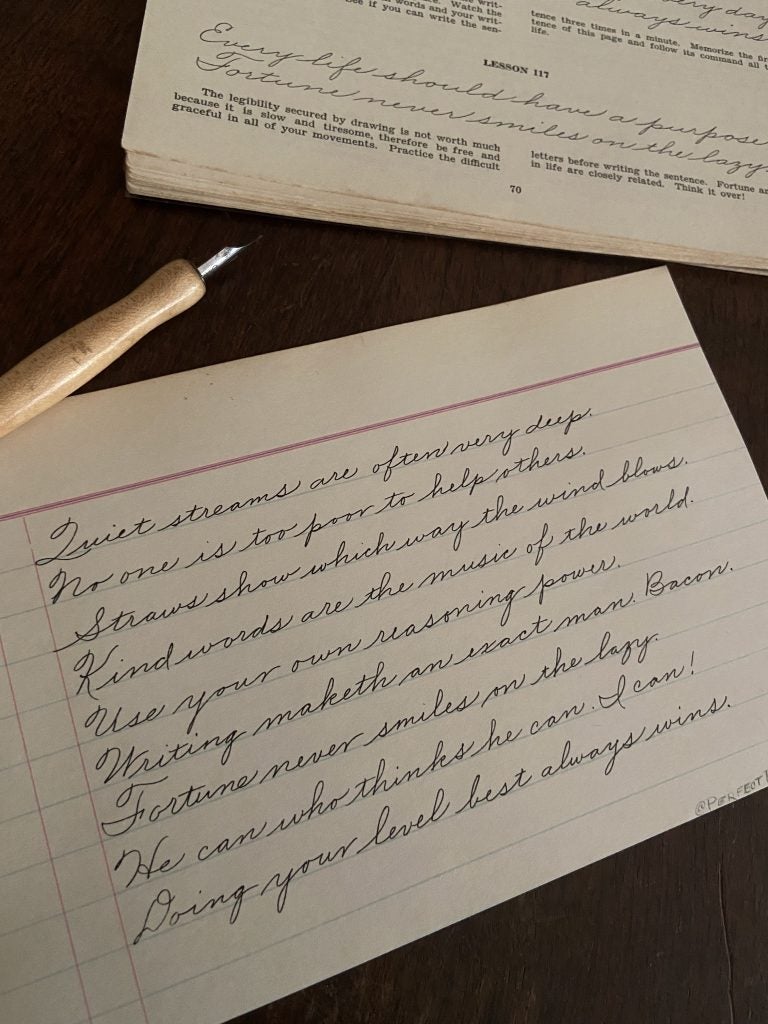 words and your writ-
see if you can write the sen-
always wins
tence three times in a minute. Memorize the
tence of this page and follow its command all
life.
LESSON 117
Every life should have a purpose
Fortune never smiles on the lazy.
The legibility secured by drawing is not worth much
because it is slow and tiresome, therefore be free and
graceful in all of your movements. Practice the difficult
letters before writing the sentence. Fortune
in life are closely related. Think it over!
70
Quiet streams are often very deep.
No one is too poor to help others.
Straws show which way the wind blows.
Kind words are the music of the world.
Use your own reasoning power.
Writing maketh an exact man. Bacon.
Fortune never smiles on the lazy.
He can who thinks he can. I can!
Doing your level best always wins.